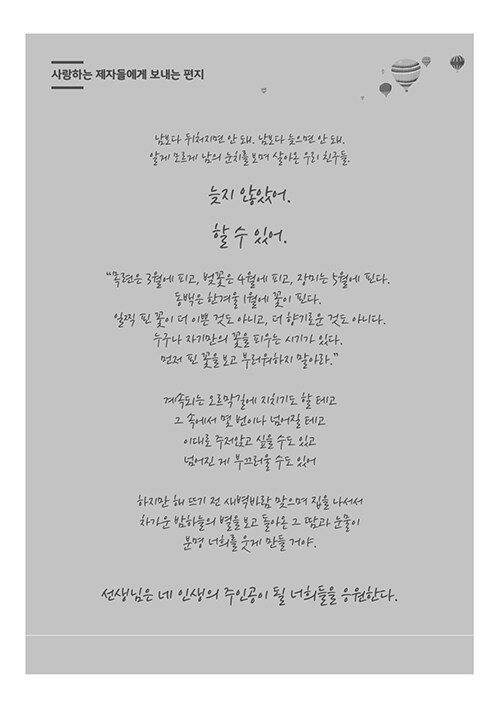 사랑하는 제자들에게 보내는 편지
남보다 뒤처지면 안 돼. 남보다 늦으면 안 돼.
알게 모르게 남의 눈치를 보며 살아온 우리 친구들.
늦지 않았어.
할 수 있어.
"목련은 3월에 피고, 벚꽃은 4월에 피고, 장미는 5월에 핀다.
동백은 한겨울 1월에 꽃이 핀다.
일찍 핀 꽃이 더 이쁜 것도 아니고, 더 향기로운 것도 아니다.
누구나 자기만의 꽃을 피우는 시기가 있다.
먼저 핀 꽃을 보고 부러워하지 말아라."
계속되는 오르막길에 지치기도 할 테고
그 속에서 몇 번이나 넘어질 테고
이대로 주저앉고 싶을 수도 있고
넘어진 게 부끄러울 수도 있어
하지만 해 뜨기 전 새벽바람 맞으며 집을 나서서
차가운 밤하늘의 별을 보고 돌아온 그 땀과 눈물이
분명 너희를 웃게 만들 거야.
선생님은 네 인생의 주인공이 될 너희들을 응원한다.